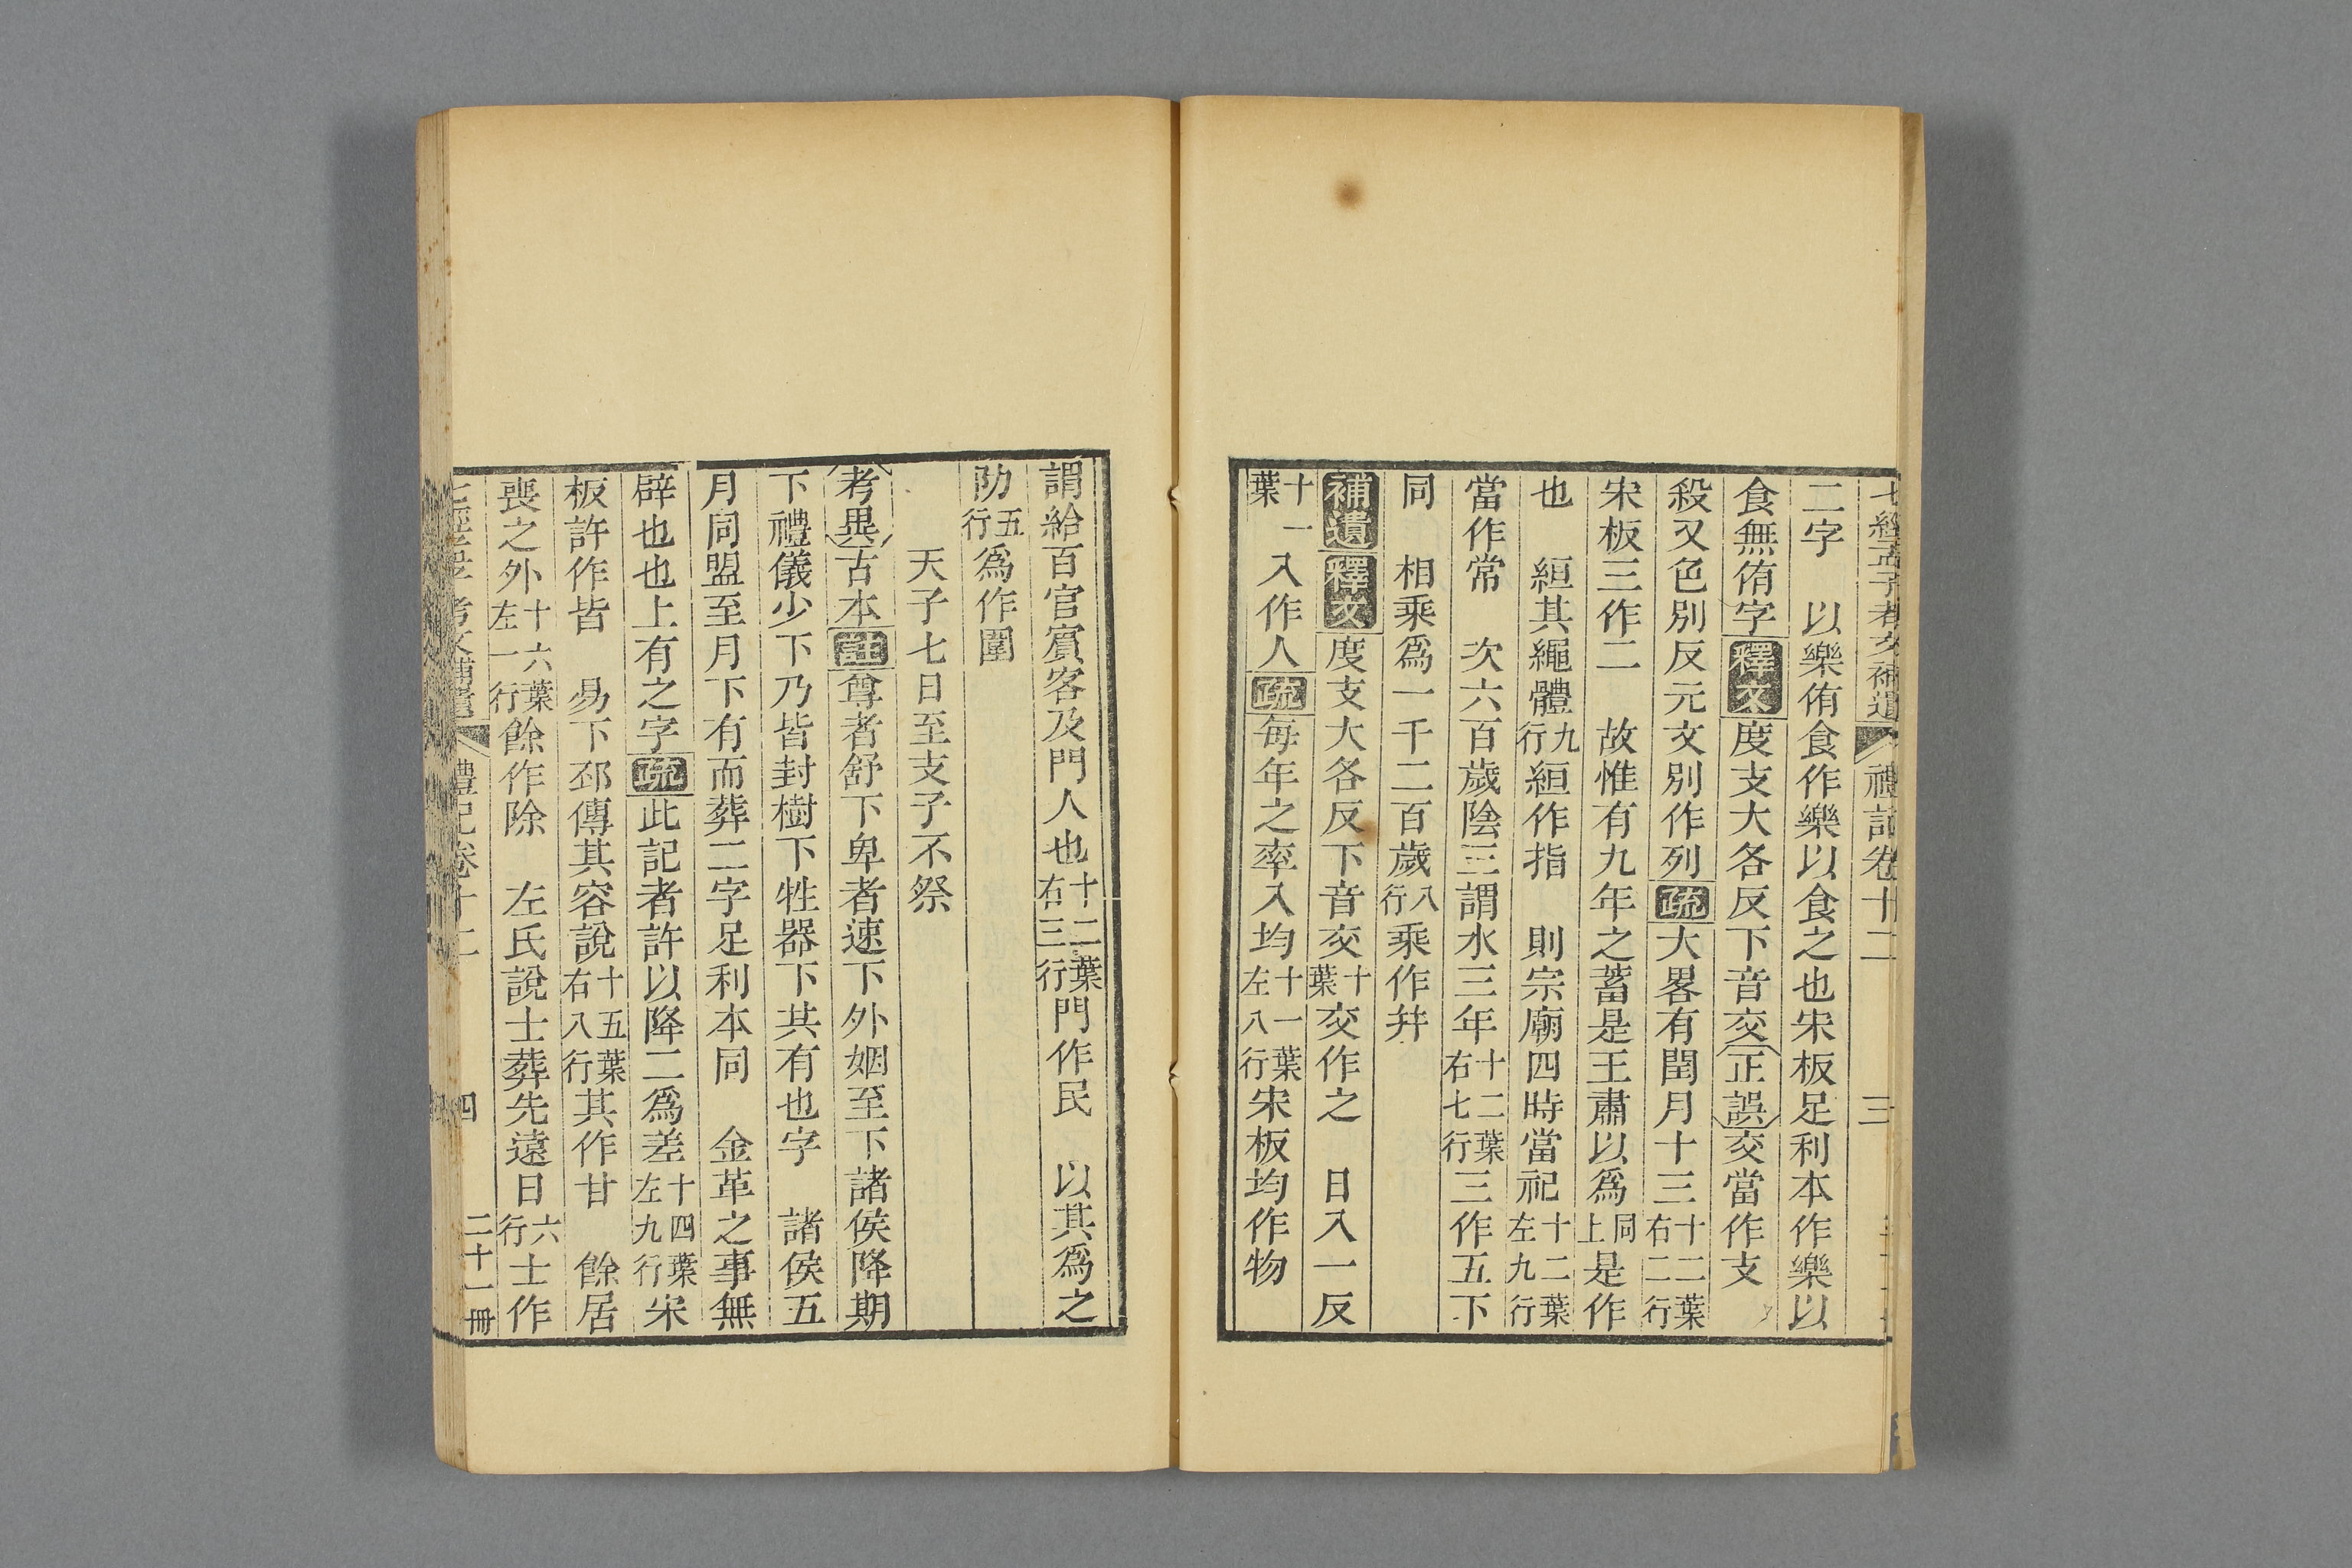 七經孟子考文補遺 禮記卷十二 三
二字　以樂侑食作樂以食之也宋板足利本作樂以
食無侑字釋文度支大各反下音交正誤交當作支
殺又色別反元文別作列疏大畧有閏月十三十二葉右二行
宋板三作二　故惟有九年之蓄是王肅以爲同上是作
也　絙其繩體九行絙作指　則宗廟四時當祀十二葉左九行
當作常　次六百歲陰三謂水三年十二葉右七行三作五下
同　相乘爲一千二百歲八行乘作幷
補遺釋文度支大各反下音交十葉交作之　日入一反
十一葉入作人疏每年之率入均十一葉左八行宋板均作物
謂給百官賓客及門人也十二葉右三行門作民　以其爲之
防五行爲作圍
天子七日至支子不祭
考異古本註尊者舒下卑者速下外姻至下諸侯降期
下禮儀少下乃皆封樹下牲器下共有也字　諸侯五
月同盟至月下有而葬二字足利本同　金革之事無
辟也也上有之字疏此記者許以降二爲差十四葉左九行宋
板許作皆　易下邳傳其容說十五葉右八行其作甘　餘居
喪之外十六葉左一行餘作除　左氏說士葬先遠日六行士作
七經孟子考文補遺 禮記卷十二 四 二十一冊